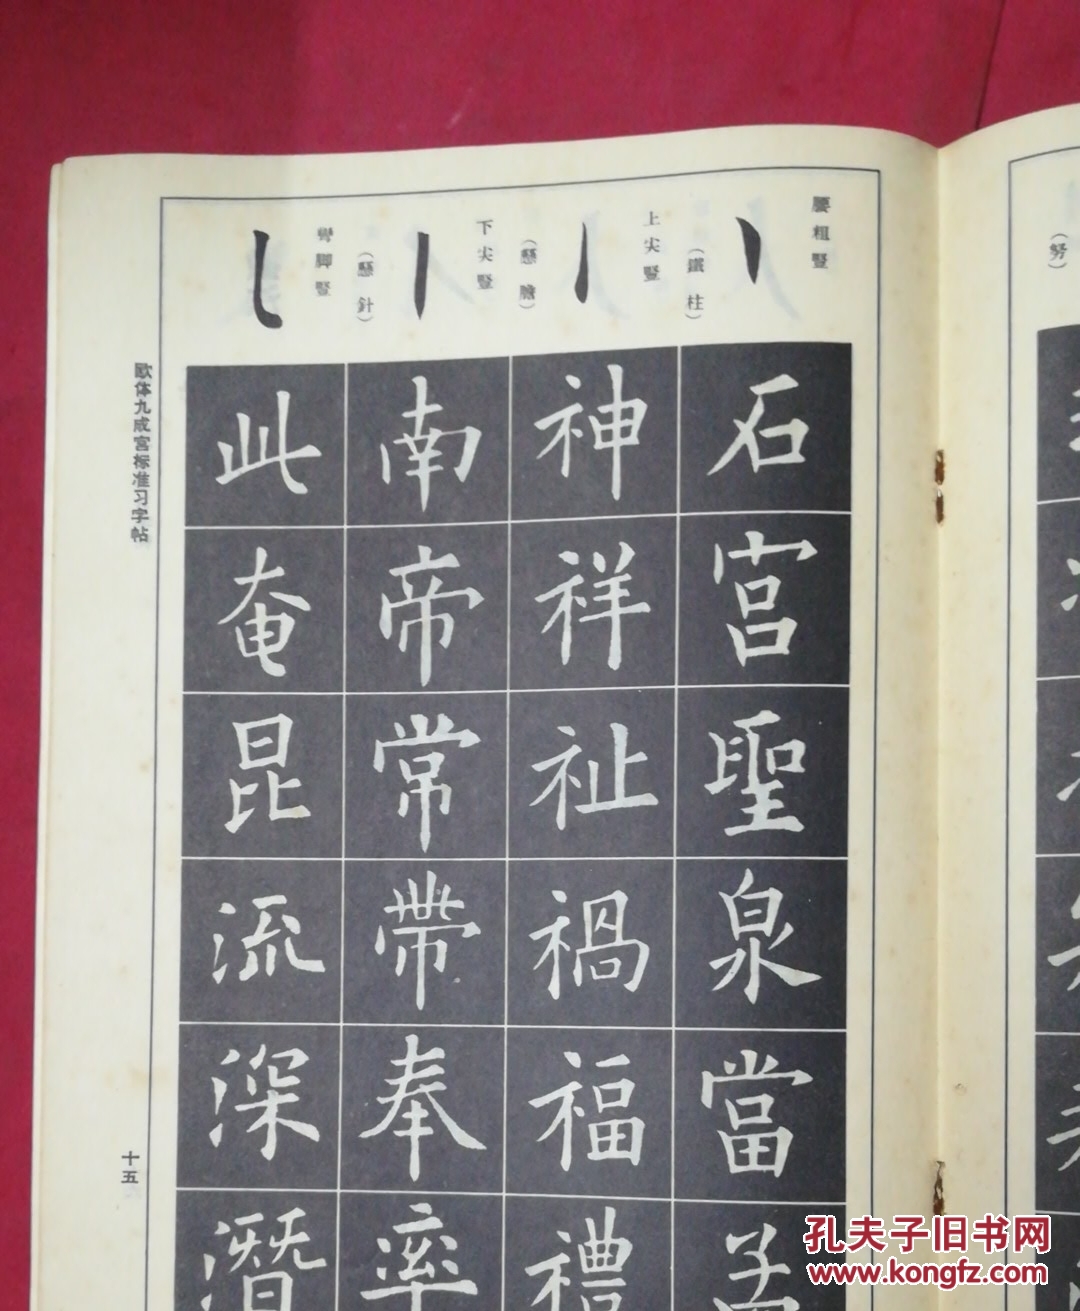 腰粗豎
(鐵柱)
上尖豎
(懸膽)
下尖豎
(懸針)
彎脚豎
石宮聖泉當孟
神祥祉禍福禮
南帝常帶奉率
此奄昆流深潛
欧体九成宮标准习字帖
十五
(努)
孔夫子旧书网
www.kongfz.com